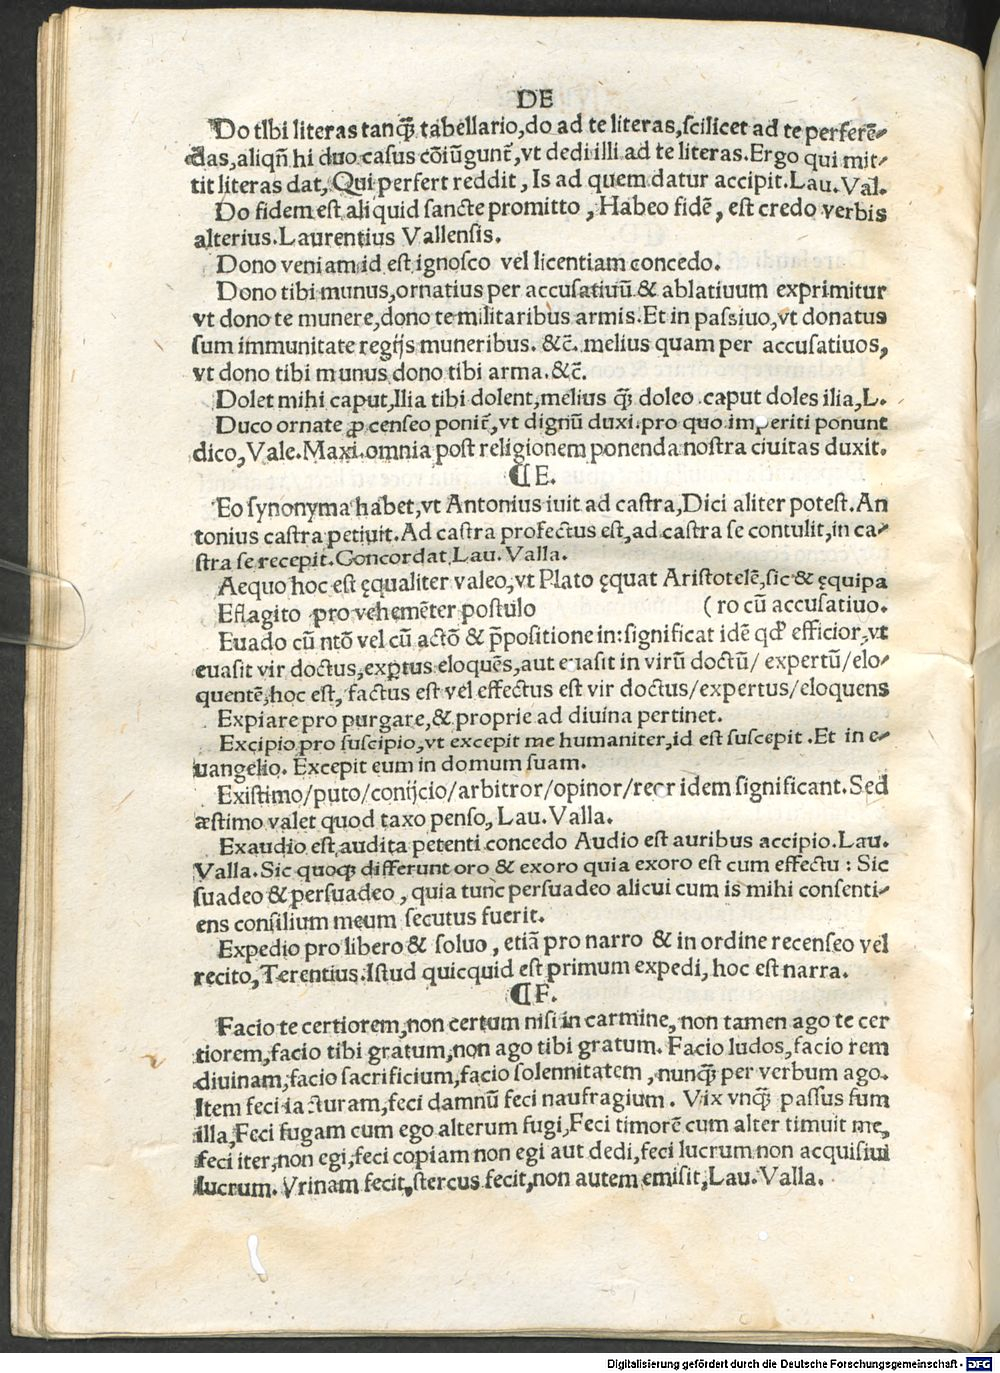 DE
Do tibi literas tanq̃ tabellario,do ad te literas,ſcilicet ad te perferẽ⸗
das,aliqñ hi duo caſus cõiũgunt̃,vt dedi illi ad te literas.Ergo qui mit⸗
tit literas dat, Qui perfert reddit, Is ad quem datur accipit.Lau.Val.
Do fidem eſt aliquid ſancte promitto, Habeo fidẽ, eſt credo verbis
alterius.Laurentius Vallenſis.
Dono veniam id eſt ignoſco vel licentiam concedo.
Dono tibi munus,ornatius per accuſatiuũ & ablatiuum exprimitur
vt dono te munere,dono te militaribus armis.Et in paſſiuo,vt donatus
ſum immunitate regijs muneribus. &c̃. melius quam per accuſatiuos,
vt dono tibi munus dono tibi arma.&c̃.
Dolet mihi caput,Ilia tibi dolent,melius q̃ doleo caput doles ilia,L.
Duco ornate ꝓ cenſeo ponit̃,vt dignũ duxi.pro quo imperiti ponunt
dico,Vale.Maxi.omnia poſt religionem ponenda noſtra ciuitas duxit.
¶ E.
Eo ſynonyma habet,vt Antonius iuit ad caſtra,Dici aliter poteſt.An
tonius caſtra petiuit.Ad caſtra profectus eſt,ad caſtra ſe contulit,in ca⸗
ſtra ſe recepit.Concordat Lau.Valla.
Aequo hoc eſt ęqualiter valeo,vt Plato ęquat Ariſtotelẽ,sic & ęquipa
Efflagito pro vehemẽter poſtulo (ro cũ accuſatiuo.
Euado cũ ntõ vel cũ actõ & p̃poſitione in:significat idẽ qd̃ efficior,vt
euaſit vir doctus,exꝑtus eloquẽs,aut euaſit in virũ doctũ/ expertũ/elo⸗
quentẽ,hoc eſt, factus eſt vel effectus eſt vir doctus/expertus/eloquens
Expiare pro purgare,& proprie ad diuina pertinet.
Excipio pro ſuſcipio,vt excepit me humaniter,id eſt ſuſcepit.Et in e⸗
uangelio. Excepit eum in domum ſuam.
Exiſtimo/puto/conijcio/arbitror/opinor/reor idem significant.Sed
æſtimo valet quod taxo penſo, Lau.Valla.
Exaudio eſt audita petenti concedo Audio eſt auribus accipio.Lau.
Valla.Sic quoq̃ differunt oro & exoro quia exoro eſt cum effectu : Sic
ſuadeo & perſuadeo, quia tunc perſuadeo alicui cum is mihi conſenti⸗
ens conſilium meum ſecutus fuerit.
Expedio pro libero & ſoluo, etiã pro narro & in ordine recenſeo vel
recito, Terentius.Iſtud quicquid eſt primum expedi, hoc eſt narra.
¶ F.
Facio te certiorem,non certum niſi in carmine, non tamen ago te cer
tiorem,facio tibi gratum,non ago tibi gratum. Facio ludos,facio rem
diuinam,facio ſacrificium,facio ſolennitatem, nunq̃ per verbum ago.
Item feci iacturam,feci damnũ feci naufragium. Vix vnq̃ paſſus ſum
illa,Feci fugam cum ego alterum fugi,Feci timorẽ cum alter timuit me,
feci iter,non egi,feci copiam non egi aut dedi,feci lucrum non acquiſiui
lucrum. Vrinam fecit,ſtercus fecit,non autem emiſit,Lau.Valla.
Digitalisierung gefördert durch die Deutsche Forschungsgemeinschaft - DFG